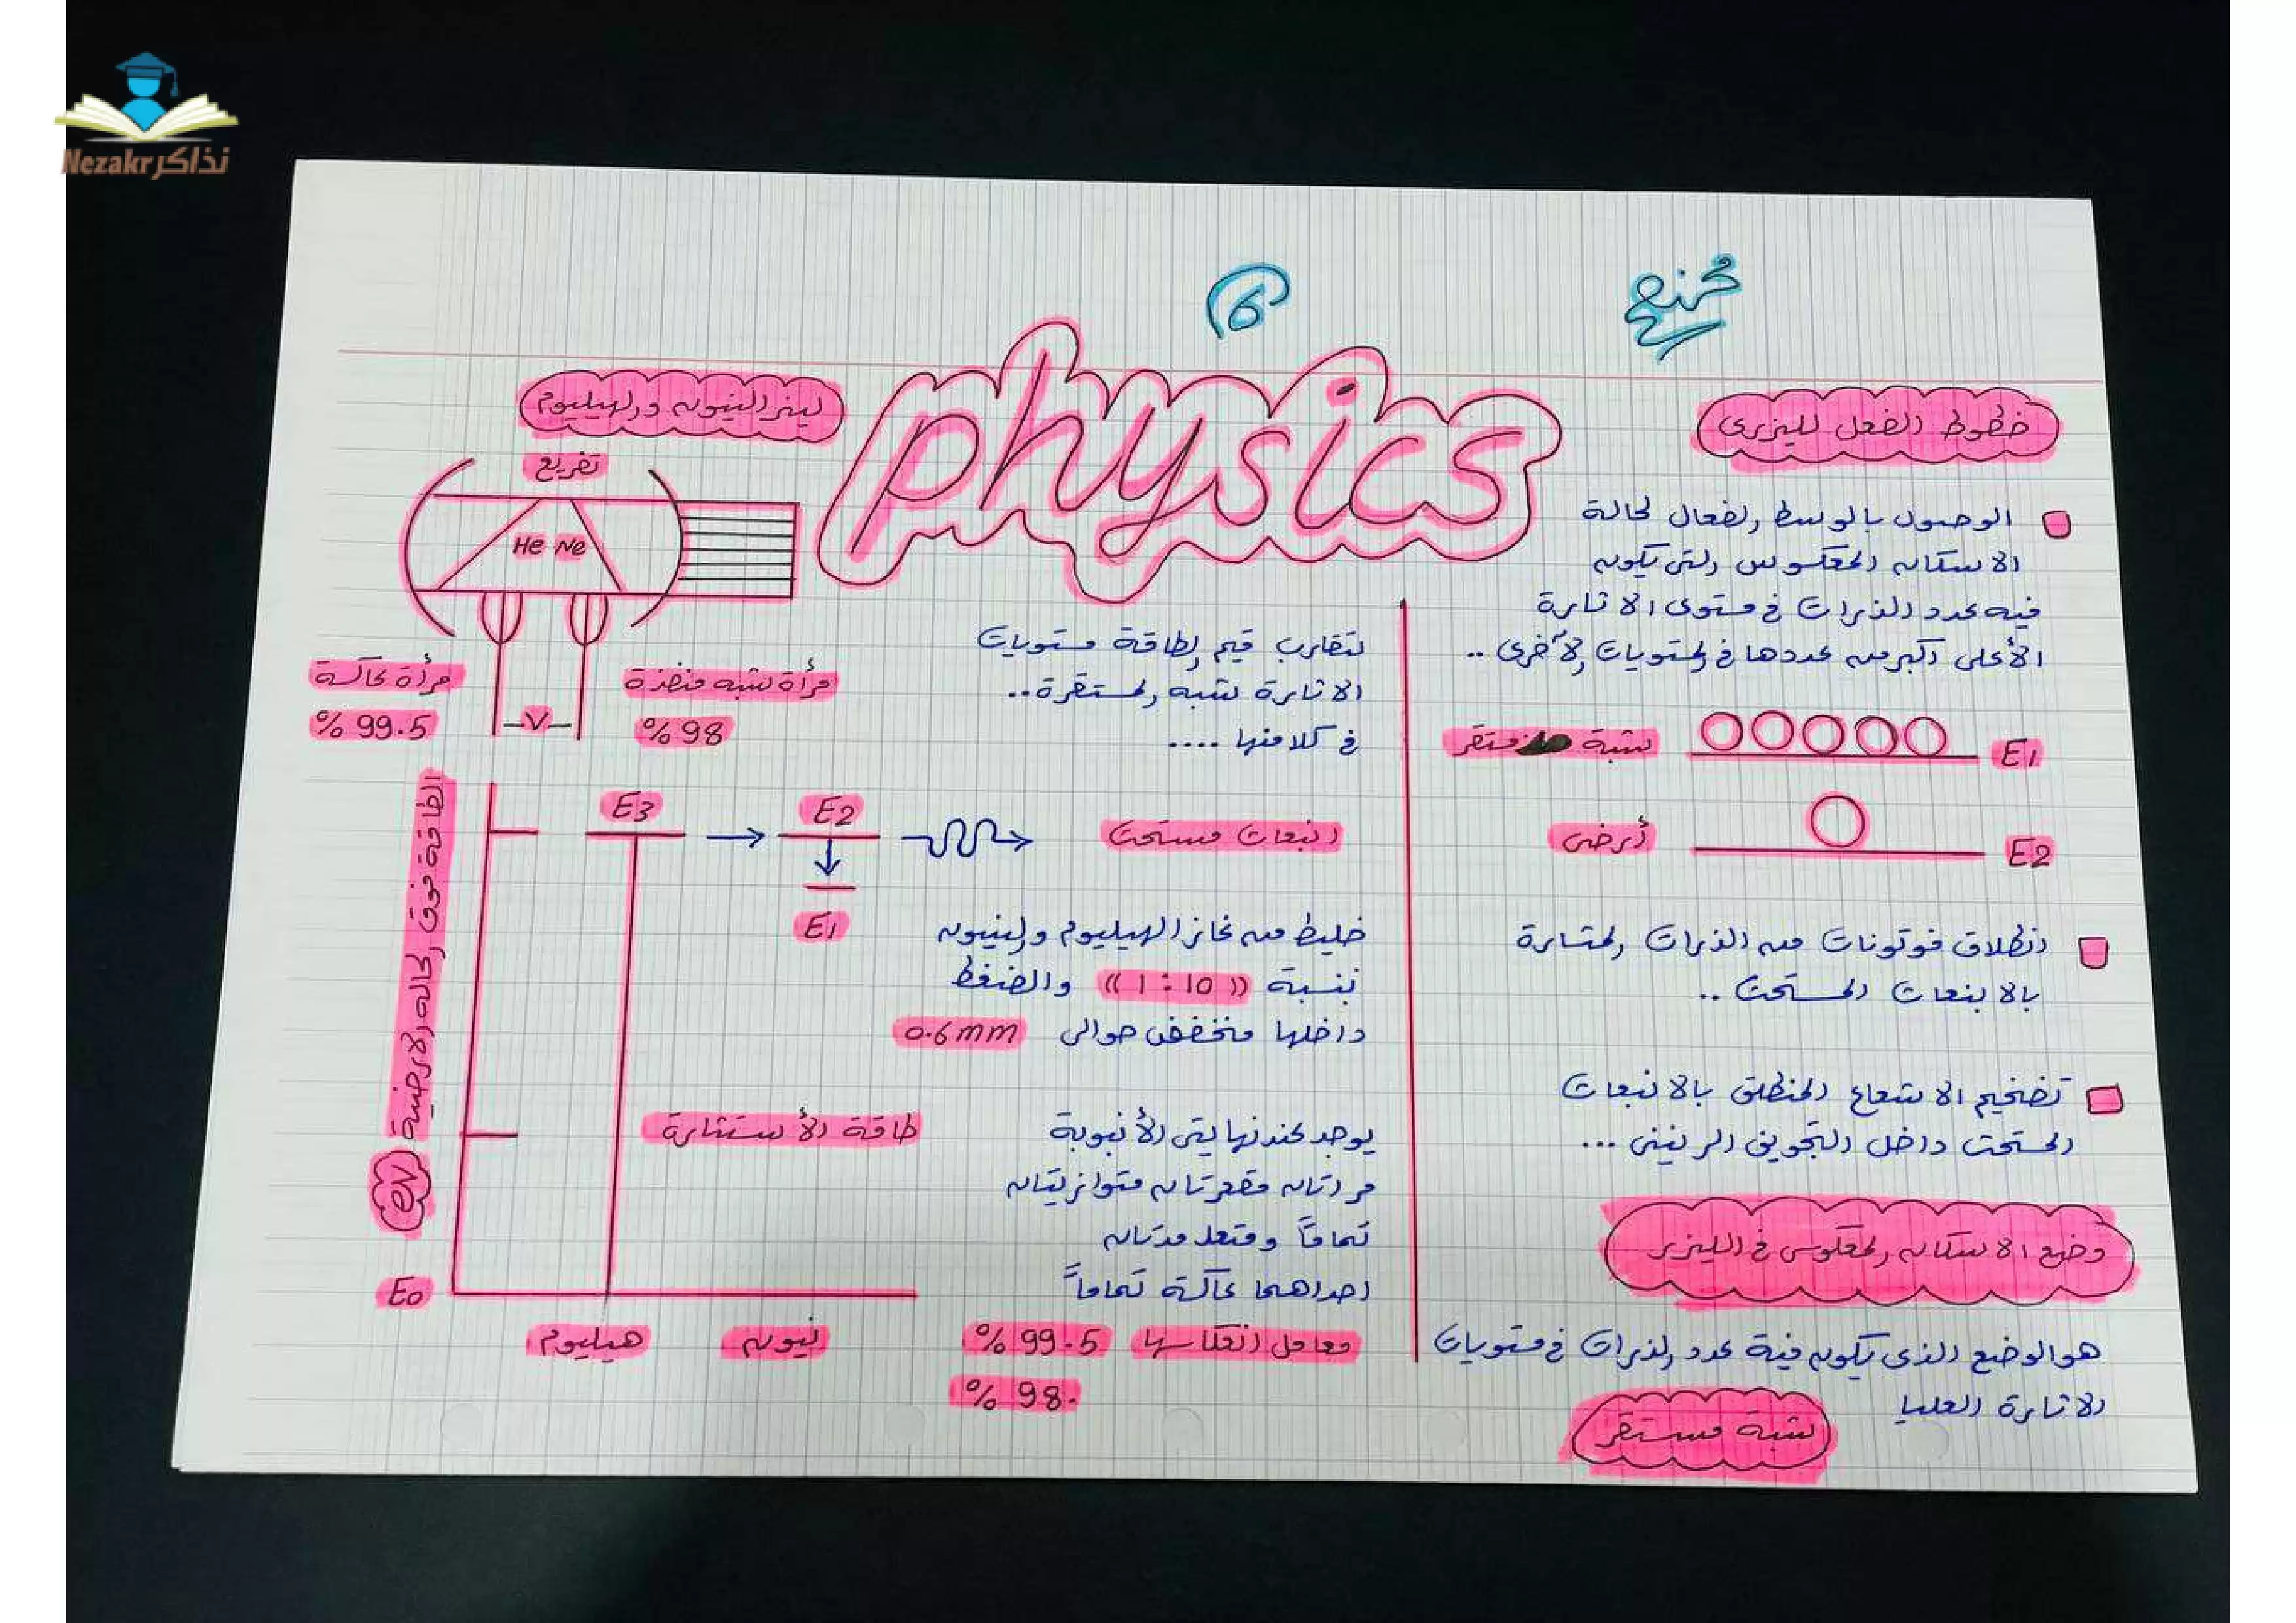 Nezakr نذاكر
6
physics
خطوط الفعل لليزرى
الوصول بالوسط الفعال لحالة
الاسكان المعكوس والتى يكون
فيه عدد الذرات فى مستوى الاثارة
الأعلى أكبر من عددها فى المستويات الآخرى ..
شبة مستقر
E1
أرضى
E2
انطلاق فوتونات من الذرات المثارة
بالانبعاث المستحث ..
تضخيم الاشعاع المنطلق بالانبعاث
المستحث داخل التجويف الرنينى ...
وضع الاسكان المعكوس فى الليزر
هو الوضع الذى يكون فية عدد الذرات فى مستويات
الاثارة العليا
شبة مستقر
ليزر النيون والهيليوم
تفريغ
He Ne
مرأة عاكسة
99.5 %
V
مرأة شبه منفذة
98 %
لتقارب قيم الطاقة مستويات
الاثارة شبه المستقرة ..
فى كلا منها ....
E3
E2
انبعاث مستحث
E1
الطاقة فوق الحاله الارضية
eV
خليط من غاز الهيليوم والنيون
بنسبة (( 1 : 10 )) والضغط
داخلها منخفض حوالى 0.6mm
طاقة الأستثارة
يوجد عند نهايتى الأنبوبة
مرأتان مقعرتان متوازيتان
تماماً ومتعامدتان
احداهما عاكسة تماماً
معامل انعكاسها 99.5 %
98 %
E0
هيليوم
نيون